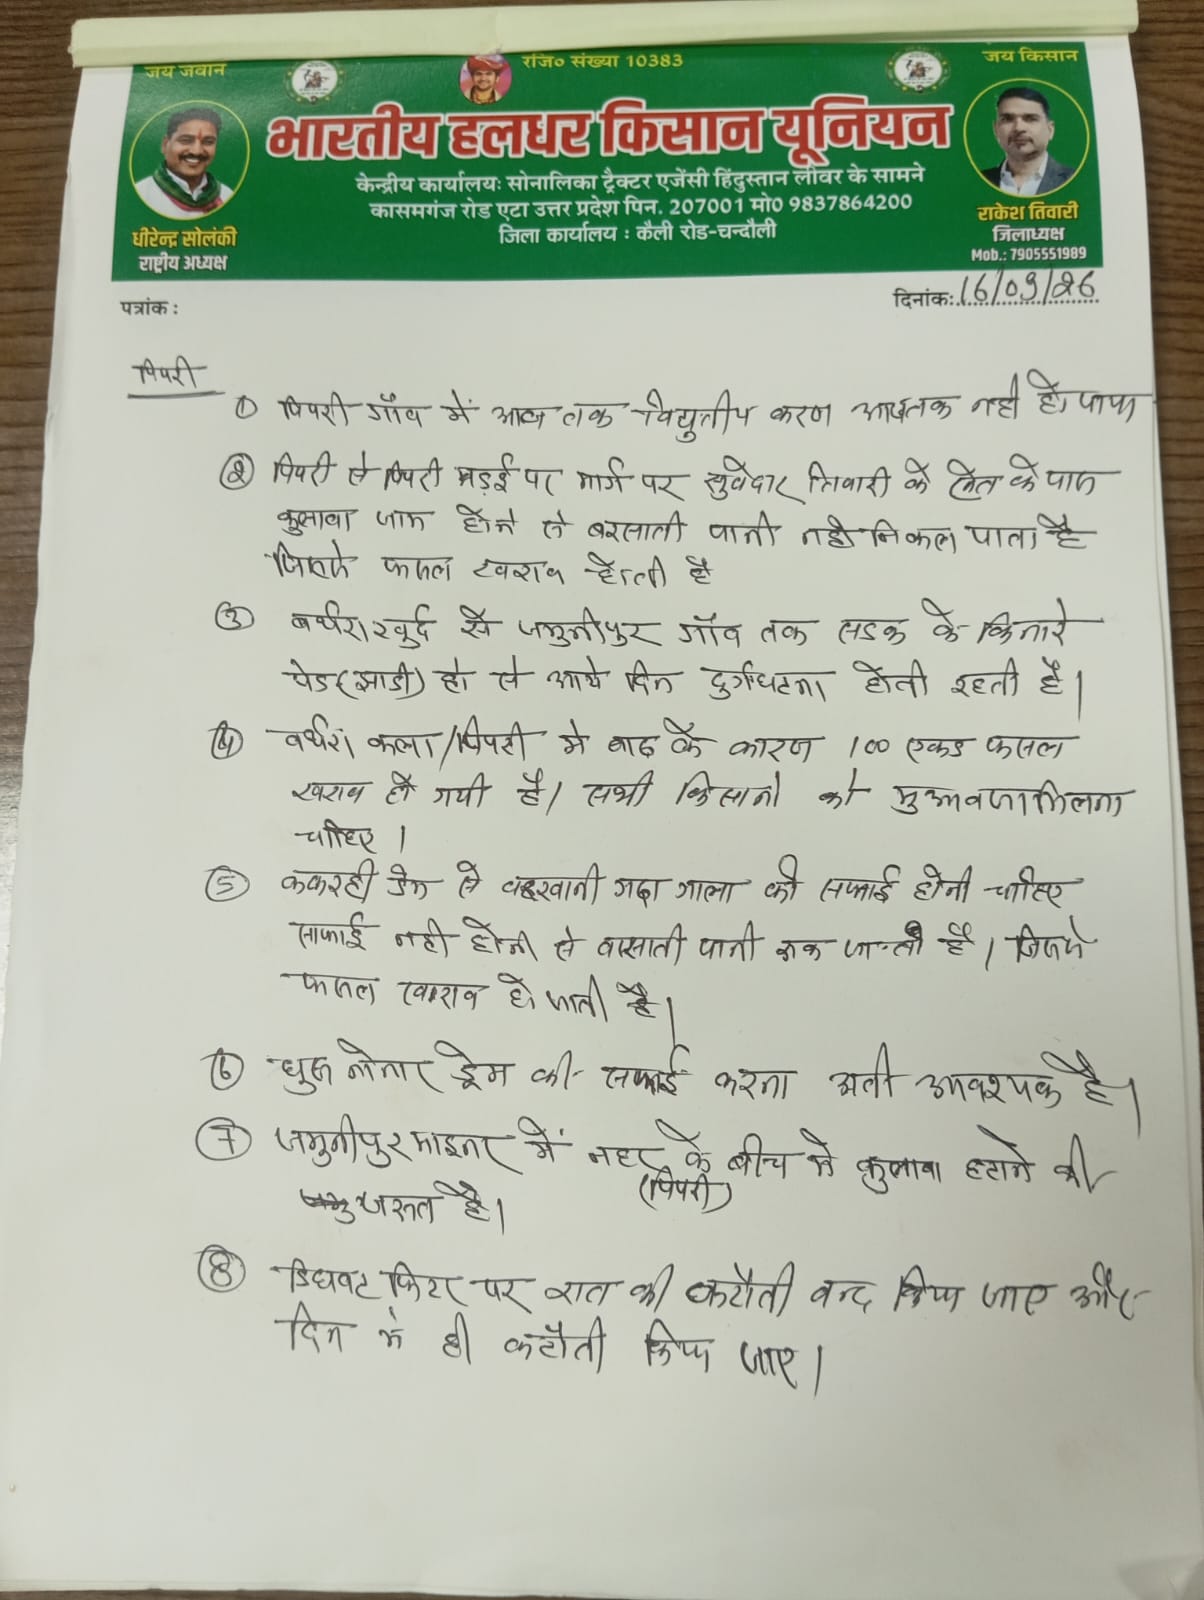 जय जवान
रजि० संख्या 10383
जय किसान
भारतीय हलधर किसान यूनियन
केन्द्रीय कार्यालयः सोनालिका ट्रैक्टर एजेंसी हिंदुस्तान लीवर के सामने
कासमगंज रोड एटा उत्तर प्रदेश पिन. 207001 मो० 9837864200
जिला कार्यालय : कैली रोड-चन्दौली
धीरेन्द्र सोलंकी
राष्ट्रीय अध्यक्ष
राकेश तिवारी
जिलाध्यक्ष
Mob.: 7905551989
पत्रांक :
दिनांक: 16/09/26
पिपरी
① पिपरी गाँव में आज तक विद्युतीय करण आजतक नही हो पाया
② पिपरी से पिपरी मड़ई पर मार्ग पर सुवेदार तिवारी के खेत के पास
कुलावा जाम होने से बरसाती पानी नही निकल पाता है
जिससे फसल खराब होती है
③ बर्थरा खुर्द से जमुनीपुर गाँव तक सडक के किनारे
पेड (झाडी) हो से आये दिन दुर्गघटना होती रहती है।
④ वर्थरा कला/पिपरी मे बाढ के कारण 100 एकड फसल
खराब हो गयी है। सभी किसानो को मुआवजा मिलना
चाहिए।
⑤ ककरही ड्रेम से गढा नाला की सफाई होनी चाहिए
साफाई नही होने से वरसाती पानी रूक जाती है। जिससे
फसल खराब हो जाती है।
⑥ ड्रेम की सफाई करना अती आवश्यक है।
⑦ जमुनीपुर माइनर में नहर के बीच मे कुलावा हटाने की
(पिपरी)
जरूत है।
⑧ डिघवट फिटर पर रात की कटौती वन्द किया जाए और
दिन मे ही कटौती किया जाए।